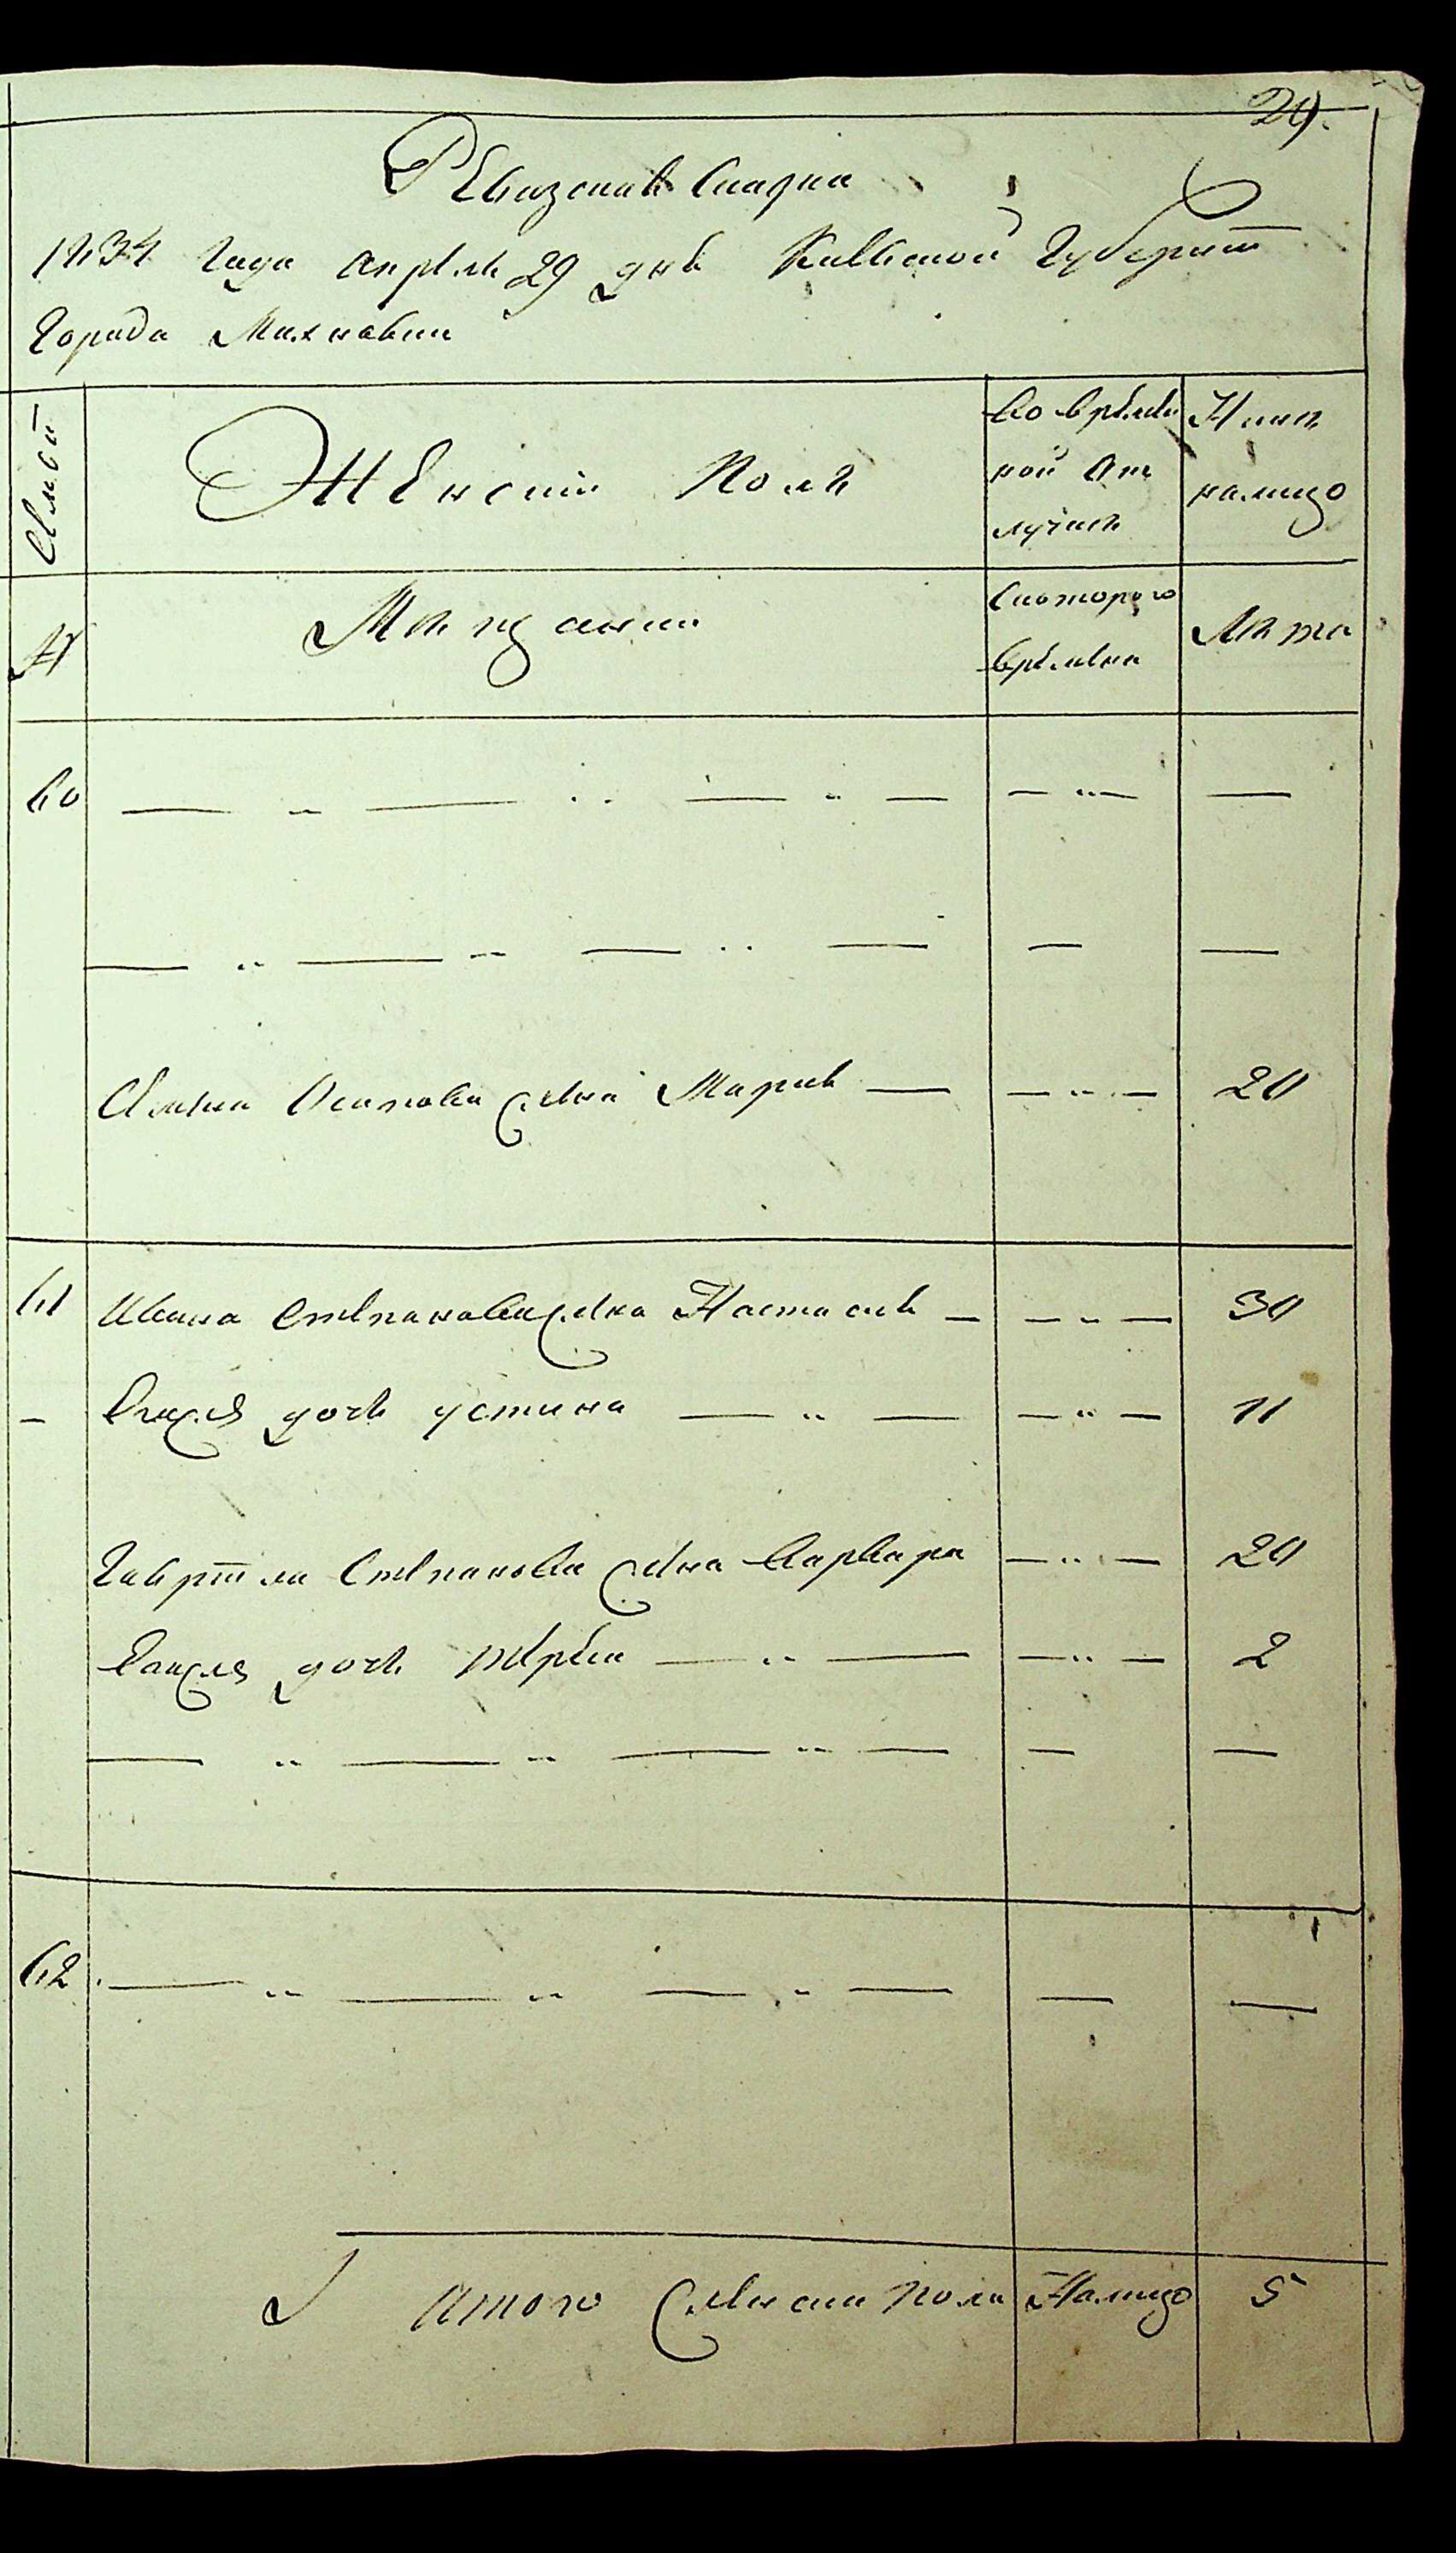 29.
Ревизская Сказка
1834 Года Апреля 29 дня Киевской Губернїи
Города Махновки
Семей
Женскій Полъ
Во времен
ной От
лучкѣ
Нынѣ
налицо
№
Мѣщанки
Скоторого
времени
Лѣта
60 — „ — „ — „ — — „ — —
— „ — „ — „ — — —
Осипова жена Марія — — „ — 20
61 Ивана Степанова жена Настасия — — „ — 30
— Ихъ дочь Устина — „ — — „ — 11
Гаврїила Степанова жена Варвара — „ — 20
дочь — „ — — „ — 2
— „ — „ — „ — — —
62 — „ — „ — „ — — —
Итого женска пола Налицо 5